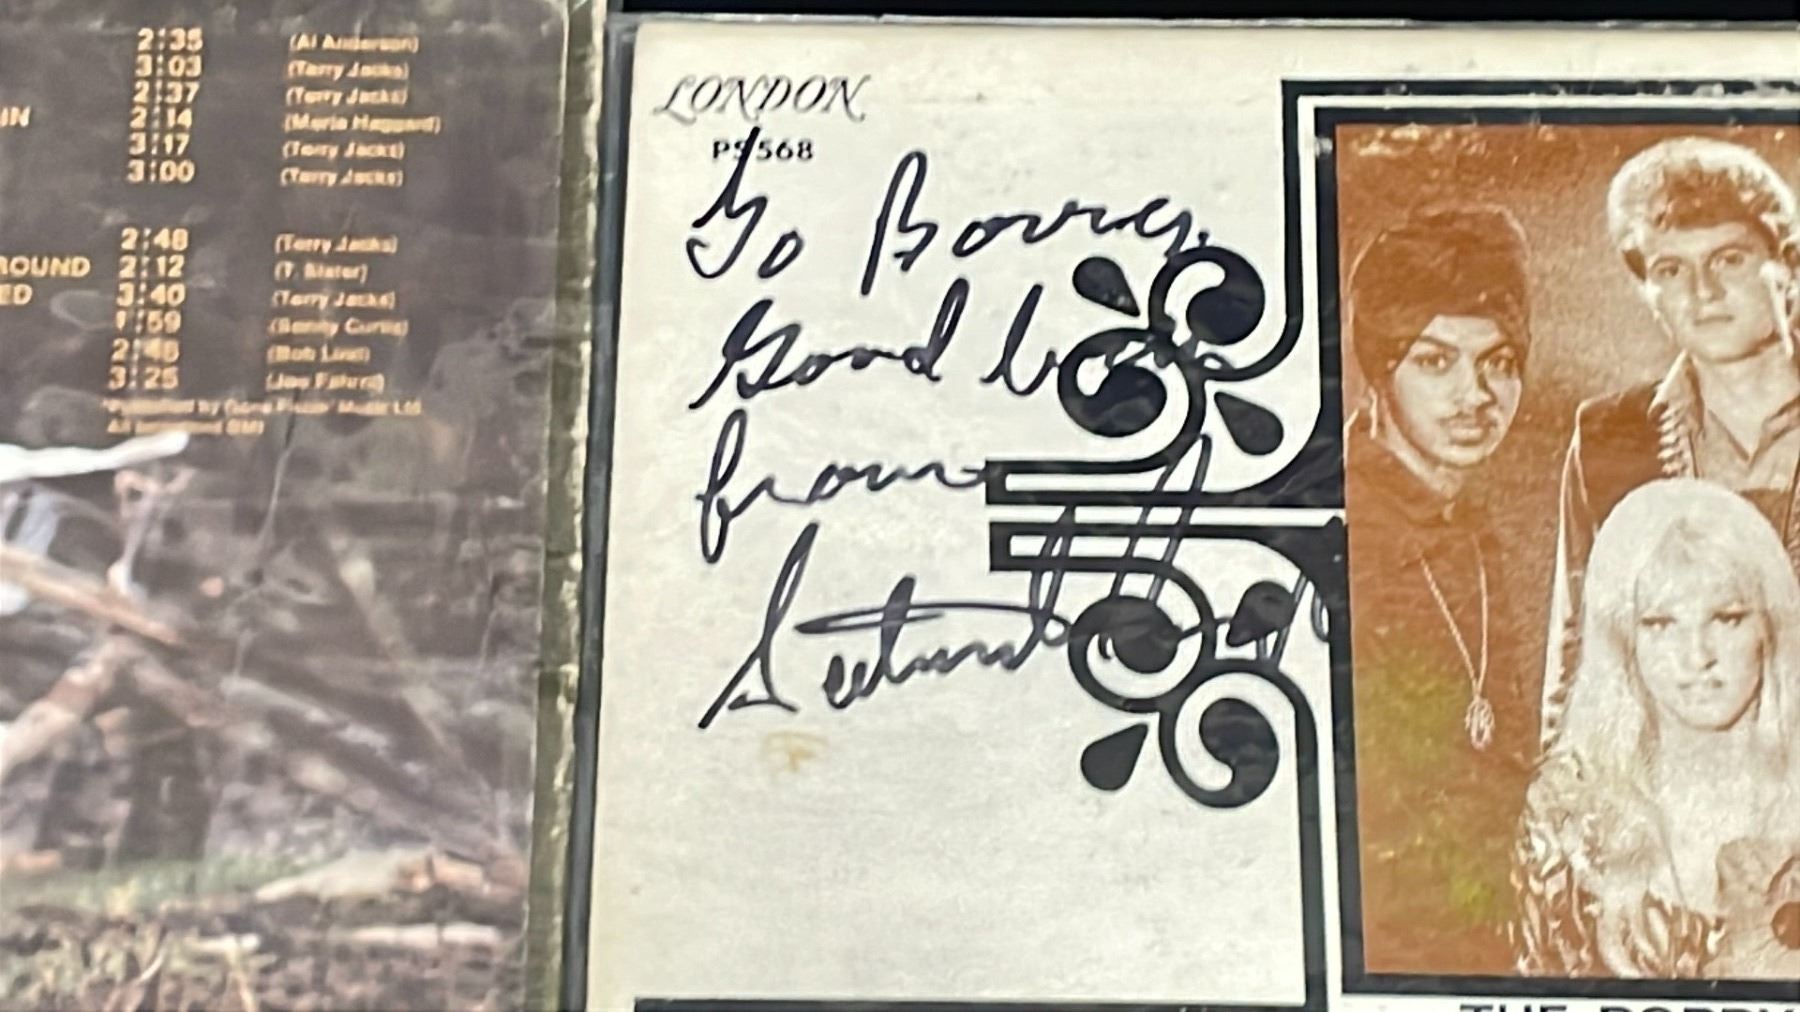 2:35 (Al Anderson)
3:03 (Terry Jacks)
2:37 (Terry Jacks)
IN 2:14 (Merle Haggard)
3:17 (Terry Jacks)
3:00 (Terry Jacks)
2:48 (Terry Jacks)
ROUND 2:12 (T. Slater)
ED 3:40 (Terry Jacks)
1:59 (Sonny Curtis)
2:48 (Bob Lind)
3:25 (Joe Fahrni)
LONDON
PS 568
To Barry,
Good luck
from
THE POPPY